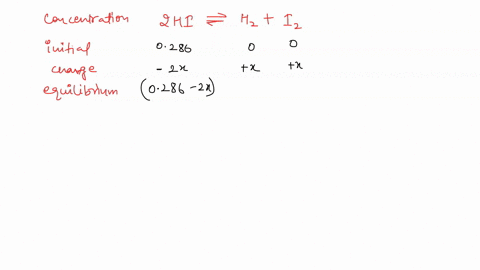 concentration 2HI ⇌ H₂ + I₂
initial 0.286 0 0
change - 2x +x +x
equilibrium (0.286 - 2x)